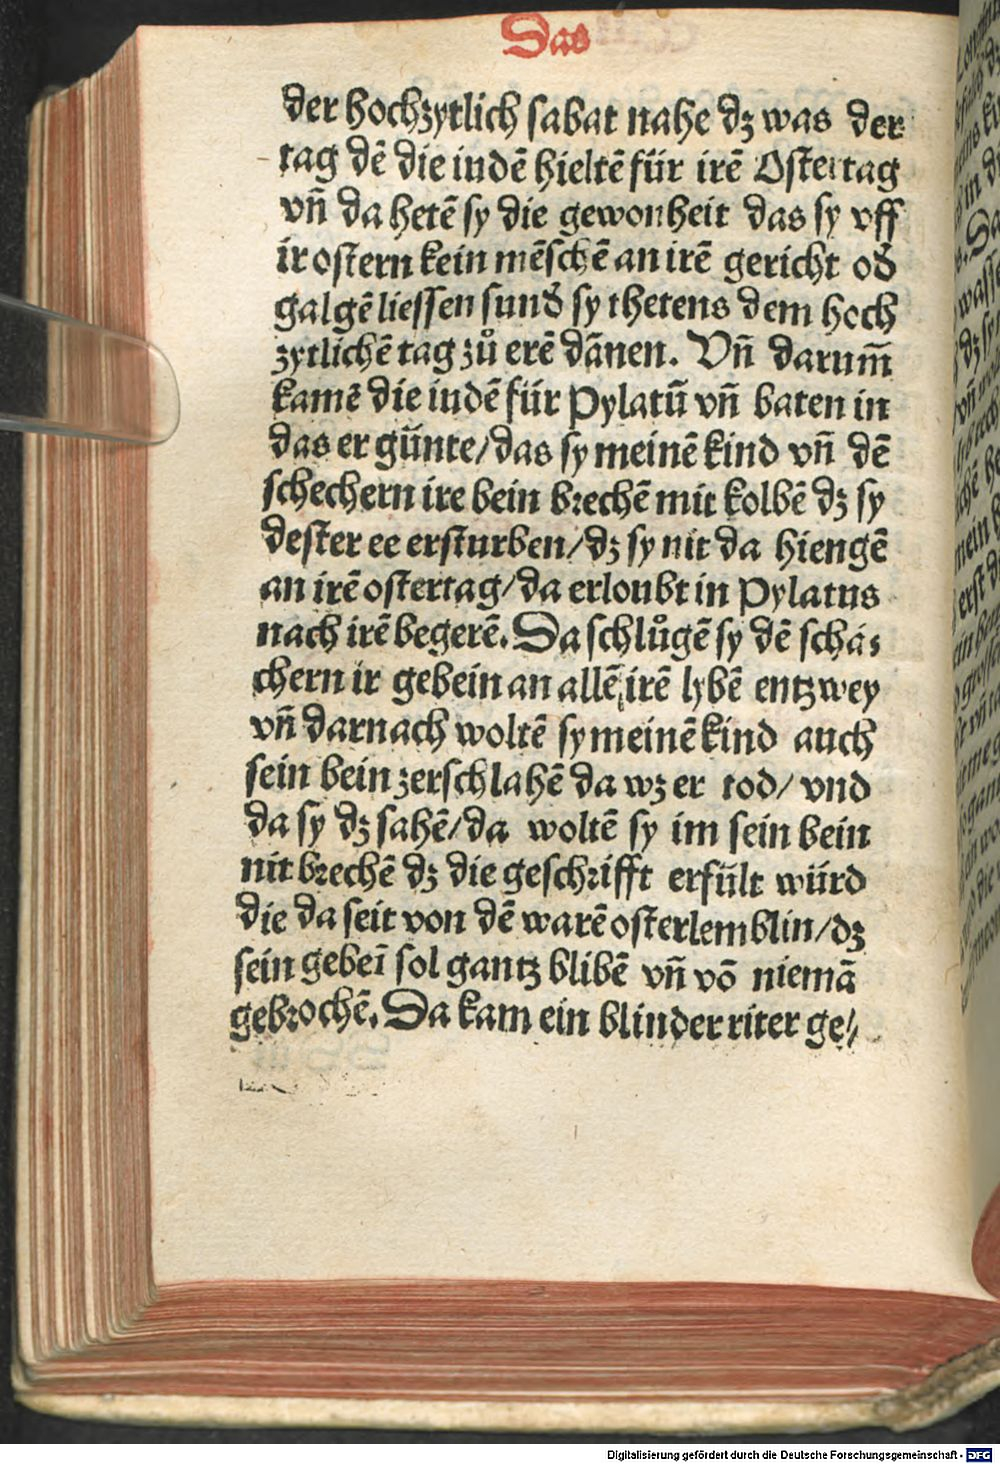 Das
der hochzytlich sabat nahe dz was der
tag dē die iudē hieltē für irē Ostertag
vn̄ da hetē sy die gewonheit das sy vff
ir ostern kein mēschē an irē gericht od̕
galgē liessen sund̕ sy thetens dem hoch
zytlichē tag zů erē dānen. Vn̄ darum̄
kamē die iudē für Pylatū vn̄ baten in
das er gūnte/das sy meinē kind vn̄ dē
schechern ire bein brechē mit kolbē dz sy
dester ee ersturben/dz sy nit da hiengē
an irē ostertag/da erloubt in Pylatus
nach irē begerē. Da schlůgē sy dē schä⸗
chern ir gebein an allē irē lybē entzwey
vn̄ darnach woltē sy meinē kind auch
sein bein zerschlahē da wz er tod/ vnd
da sy dz sahē/da woltē sy im sein bein
nit brechē dz die geschrifft erfült würd
die da seit von dē warē osterlemblin/dz
sein gebeī sol gantz blibē vn̄ vō niemā
gebrochē. Da kam ein blinder riter ge⸗
Digitalisierung gefördert durch die Deutsche Forschungsgemeinschaft - DFG